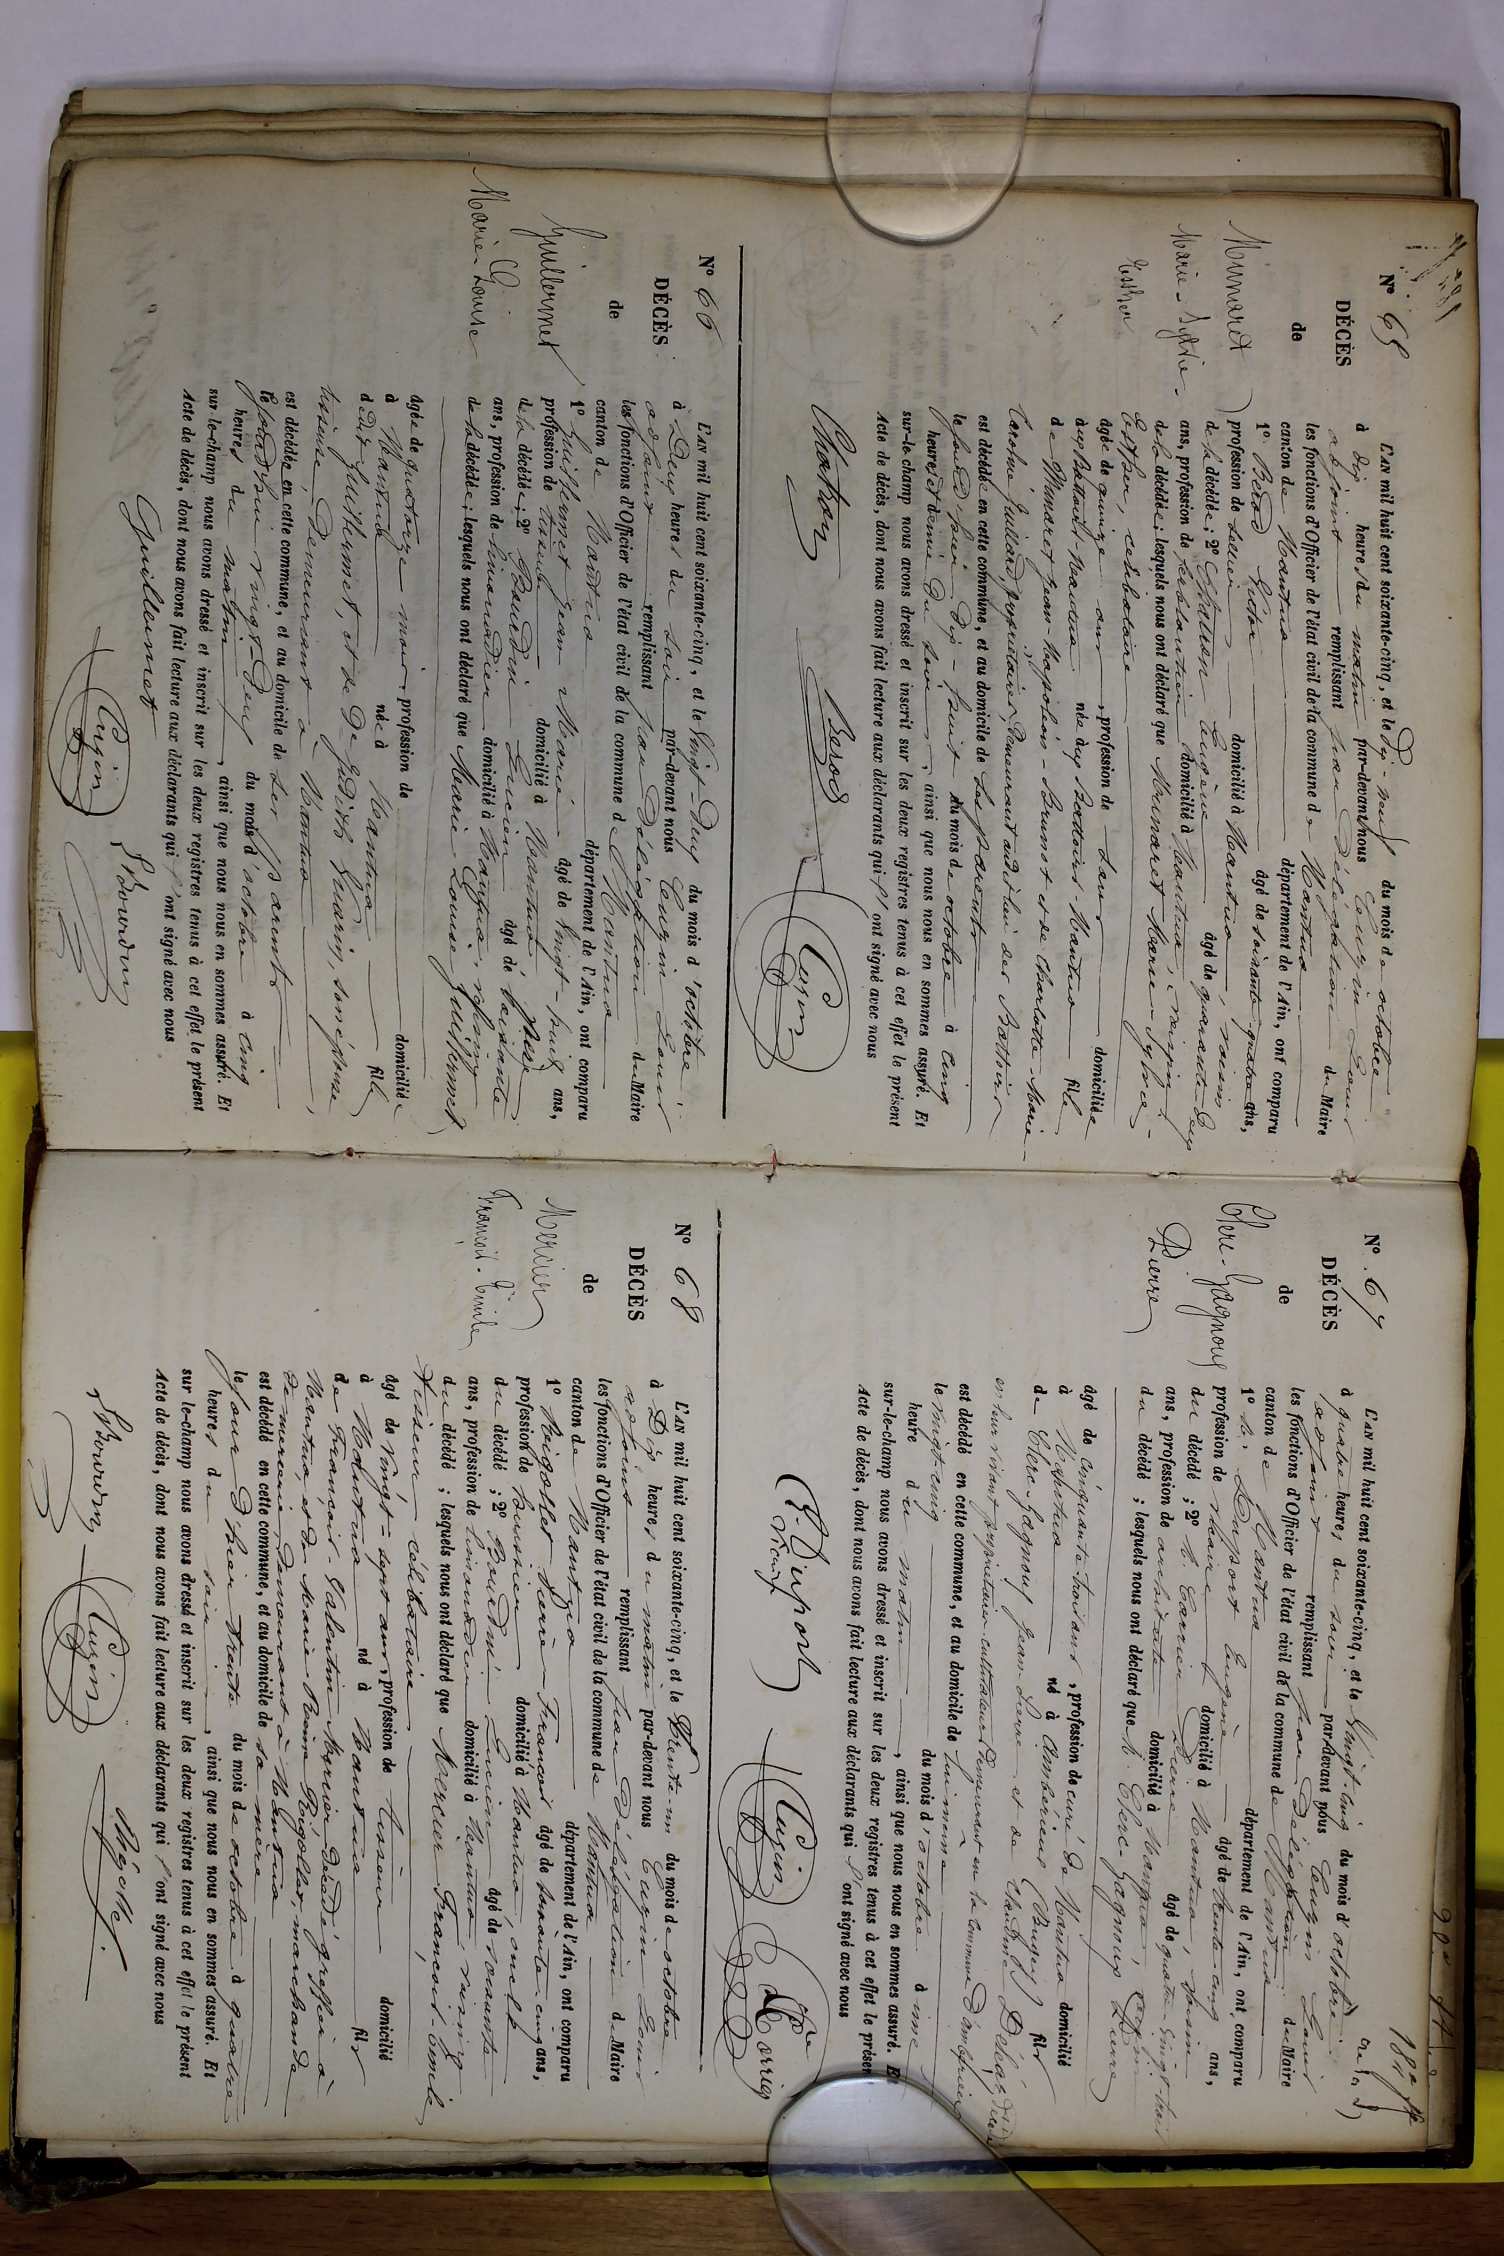 N° 65
DÉCÈS
de
Munaret
Marie-Sylvie-
Esther
L'AN mil huit cent soixante-cinq, et le Dix-neuf du mois de octobre
à dix heures du matin par-devant nous Cuzin Louis
adjoint remplissant par délégation du Maire
les fonctions d'Officier de l'état civil de la commune de Nantua
canton de Nantua département de l'Ain, ont comparu
1° Berod Victor âgé de soixante quatre ans,
profession de sellier domicilié à Nantua, voisin
de la décédée; 2° Chatron âgé de quarante
ans, profession de ferblantier domicilié à Nantua, voisin
de la décédée; lesquels nous ont déclaré que Munaret Marie-Sylvie-
Esther, célibataire
âgée de quinze ans, profession de sans domiciliée
à aux Battoirs-Nantua née à aux Battoirs-Nantua fille
de Munaret Jean-Napoléon-Brunot et de Charlotte-Marie-
Caroline Juillard, propriétaires, demeurant audit lieu des Battoirs
est décédée en cette commune, et au domicile de ses parents
le jour d'hier dix-huit du mois de octobre à cinq
heures et demie du soir, ainsi que nous nous en sommes assuré. Et
sur-le-champ nous avons dressé et inscrit sur les deux registres tenus à cet effet le présent
Acte de décès, dont nous avons fait lecture aux déclarants qui ont signé avec nous
Chatron Berod Cuzin
N° 66
DÉCÈS
de
Guillermet
Marie-Louise
L'AN mil huit cent soixante-cinq, et le Vingt-Deux du mois d'octobre
à Deux heures du soir par-devant nous Cuzin Louis
adjoint remplissant par Délégation du Maire
les fonctions d'Officier de l'état civil de la commune de Nantua
canton de Nantua département de l'Ain, ont comparu
1° Guillermet Jean-Marie âgé de Vingt-huit ans,
profession de tisseur domicilié à Nantua, père
de la décédée; 2° Bourdin Lucien âgé de soixante
ans, profession de limonadier domicilié à Nantua, voisin
de la décédée; lesquels nous ont déclaré que Marie-Louise Guillermet
âgée de quatorze mois, profession de domiciliée
à Nantua née à Nantua fille
dudit Guillermet, et de De Judith Guarin, son épouse
tisseuse, Demeurant à Nantua,
est décédée en cette commune, et au domicile de ses parents
le jourd'hui vingt-Deux du mois d'octobre à cinq
heures du matin, ainsi que nous nous en sommes assuré. Et
sur-le-champ nous avons dressé et inscrit sur les deux registres tenus à cet effet le présent
Acte de décès, dont nous avons fait lecture aux déclarants qui ont signé avec nous
Guillermet Cuzin Bourdin
N° 67
DÉCÈS
de
Clerc-Gagnoux
Pierre
L'AN mil huit cent soixante-cinq, et le Vingt-cinq du mois d'octobre
à quatre heures du soir par-devant nous Cuzin Louis
adjoint remplissant par Délégation du Maire
les fonctions d'Officier de l'état civil de la commune de Nantua
canton de Nantua département de l'Ain, ont comparu
1° M. Duport Eugène âgé de trente-cinq ans,
profession de vicaire domicilié à Nantua, voisin
du décédé; 2° M. Carrier Pierre âgé de quatre-vingt-trois
ans, profession de architecte domicilié à Nantua, voisin
du décédé; lesquels nous ont déclaré que M. Clerc-Gagnoux Pierre
âgé de cinquante-trois ans, profession de curé de Nantua domicilié
à Nantua né à Ambérieux (Bugey) fils
de Clerc-Gagnoux Jean-Pierre et de Claudine
en leur vivant propriétaires cultivateurs demeurant en la commune d'Ambérieux
est décédé en cette commune, et au domicile de lui-même
le vingt-cinq du mois d'octobre à une
heure du matin, ainsi que nous nous en sommes assuré. Et
sur-le-champ nous avons dressé et inscrit sur les deux registres tenus à cet effet le présent
Acte de décès, dont nous avons fait lecture aux déclarants qui ont signé avec nous
E. Duport
vicaire
Cuzin
N° 68
DÉCÈS
de
Mercier
François-Emile
L'AN mil huit cent soixante-cinq, et le Trente un du mois de octobre
à Dix heures du matin par-devant nous Cuzin Louis
adjoint remplissant par Délégation du Maire
les fonctions d'Officier de l'état civil de la commune de Nantua
canton de Nantua département de l'Ain, ont comparu
1° Reigollet Pierre-François âgé de soixante cinq ans,
profession de huissier domicilié à Nantua, oncle
du décédé; 2° Bourdin Lucien âgé de soixante
ans, profession de limonadier domicilié à Nantua, voisin
du décédé; lesquels nous ont déclaré que Mercier François-Emile
tisseur célibataire
âgé de Vingt-sept ans, profession de tisseur domicilié
à Nantua né à Nantua fils
de François-Valentin Mercier décédé greffier à
Nantua et de Marie-Reine Rigollet, marchande
de mercerie demeurant à Nantua
est décédé en cette commune, et au domicile de sa mère
le jour d'hier trente du mois de octobre à quatre
heures du soir, ainsi que nous nous en sommes assuré. Et
sur-le-champ nous avons dressé et inscrit sur les deux registres tenus à cet effet le présent
Acte de décès, dont nous avons fait lecture aux déclarants qui ont signé avec nous
Bourdin Cuzin